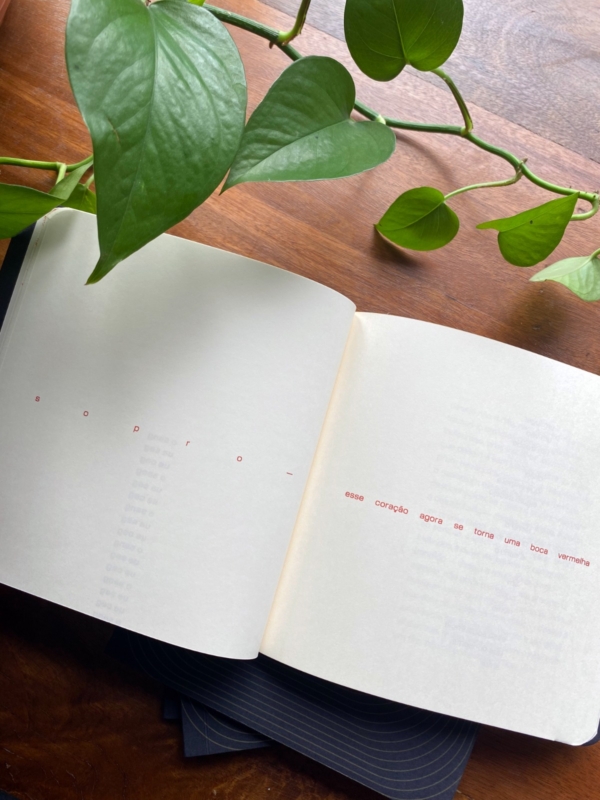 s o p r o –
esse coração agora se torna uma boca vermelha